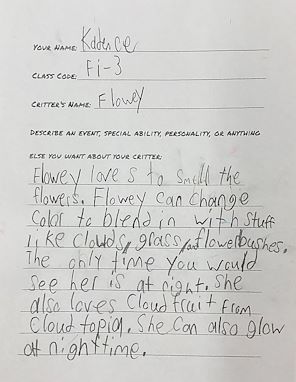 YOUR NAME: Kadence
CLASS CODE: Fi-3
CRITTER'S NAME: Flowey
DESCRIBE AN EVENT, SPECIAL ABILITY, PERSONALITY, OR ANYTHING
ELSE YOU WANT ABOUT YOUR CRITTER:
Flowey loves to smell the
flowers. Flowey can change
color to blend in with stuff
like clouds, grass, and flowerbushes.
The only time you would
see her is at night. She
also loves Cloudfruit from
Cloudtopia. She can also glow
at nighttime.